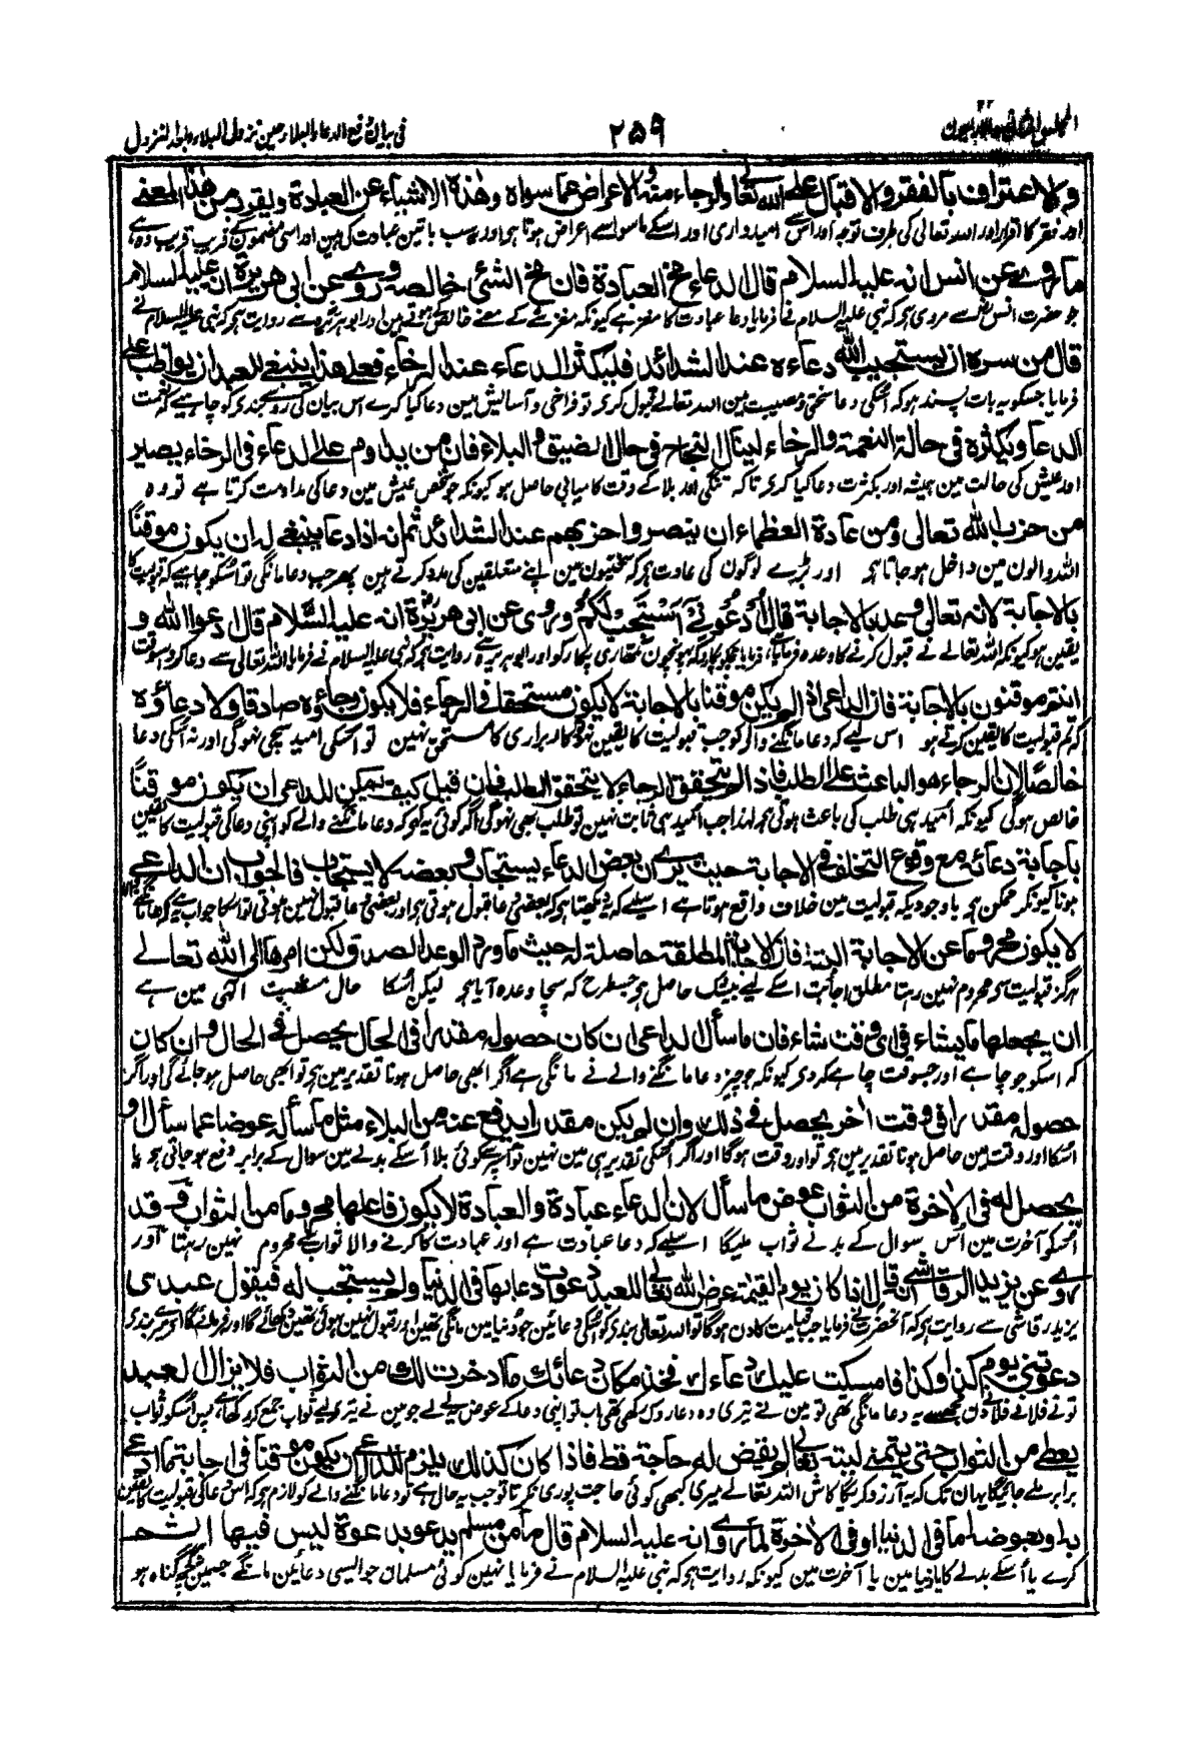 فی بیان رفع الدعاء البلاء حین نزول البلاء وبعد النزول
۲۵۹
المجلس
والاعتراف بالفقر والاقبال علی الله تعالی والرجاء منه والاعراض عما سواه وهذه الاشیاء عن العبادة ویقرب من هذا المعنی
اور فقر کا اقرار اور اللہ تعالی کی طرف توجہ اور اس سے امیدواری اور اسکے ماسوا سے اعراض ہوتا ہی اور یہ سب باتین عبادت کی ہین اور اسی مضمون کے قریب قریب وہ ہے
ما روی عن انس انه علیه السلام قال الدعاء مخ العبادة فان مخ الشئ خالصه وروی عن ابی هریرة انه علیه السلام
جو حضرت انس سے مروی ہی کہ نبی علیہ السلام نے فرمایا دعا عبادت کا مغز ہے کیونکہ مغز شے کے معنے خالص کے ہوتے ہین اور ابو ہریرہ سے روایت ہی کہ نبی علیہ السلام نے
قال من سره ان یستجیب الله دعاءه عند الشدائد فلیکثر الدعاء عند الرخاء فعلی هذا ینبغی للعبد ان یواظب علی
فرمایا جسکو یہ بات پسند ہو کہ اسکی دعا سختی و مصیبت مین اللہ تعالے قبول کری تو فراخی و آسایش مین دعا کیا کرے اس بیان کی رو سے بندی کو چاہیے کہ نعمت
الدعا ویکثره فی حالة النعمة والرخاء لینال النجاح فی حال الضیق والبلاء فان من یداوم علی الدعاء فی الرخاء یصیر
اور عیش کی حالت مین ہمیشہ اور بکثرت دعا کیا کری تاکہ تنگی اور بلا کے وقت کامیابی حاصل ہو کیونکہ جو شخص عیش مین دعا کی مداومت کرتا ہے تو وہ
من حزب الله تعالی ومن عادة العظماء ان ینصروا حزبهم عند الشدائد ثم انه اذا دعا ینبغی له ان یکون موقنًا
اللہ والون مین داخل ہو جاتا ہی اور بڑے لوگون کی عادت ہی کہ سختیون مین اپنے متعلقین کی مدد کرتے ہین پھر جب دعا مانگی تو اسکو چاہیے کہ قبولیت کا
بالاجابة لانه تعالی وعد بالاجابة قال ادعونی استجب لکم وروی عن ابی هریرة انه علیه السلام قال ادعوا الله و
یقین ہو کیونکہ اللہ تعالے نے قبول کرنے کا وعدہ فرمایا ہے، فرمایا مجھکو پکارو کہ پہونچون تمھاری پکار کو اور ابو ہریرہ سے روایت ہی کہ نبی علیہ السلام نے فرمایا اللہ تعالی سے دعا کرو اسوقت
انتم موقنون بالاجابة فان الداعی اذا لم یکن موقنا بالاجابة لا یکون مستحقا فی الرجاء فلا یکون رجاؤه صادقا ولا دعاؤه
کہ تم قبولیت کا یقین کرتے ہو اس لیے کہ دعا مانگنے والے کو جب قبولیت کا یقین نہوگا کاربراری کا مستحق نہین تو اسکی امید سچی نہوگی اور نہ اسکی دعا
خالصًا لان الرجاء هو الباعث علی الطلب فاذا لم یتحقق الرجاء لا یتحقق الطلب فان قیل کیف یمکن للداعی ان یکون موقنًا
خالص ہوگی کیونکہ امید ہی طلب کی باعث ہوتی ہی لہذا جب امید ہی ثابت نہین تو طلب بھی نہوگی اگر کوئی یہ کہے کہ دعا مانگنے والے کو اپنی دعا کی قبولیت کا یقین
باجابة دعائه مع وقوع التخلف فی الاجابة حیث یری ان بعض الدعاء یستجاب وبعضه لا یستجاب فالجواب ان الداعی
ہونا کیونکر ممکن ہی باوجودیکہ قبولیت مین خلاف واقع ہوتا ہے اسلیے کہ دیکھتا ہی کہ بعضی دعا قبول ہوتی ہی اور بعضی دعا قبول نہین ہوتی تو اسکا جواب یہ کہ دعا مانگنے والا
لا یکون محروما عن الاجابة البتة فان الاجابة المطلقة حاصلة له حیث ما ورد الوعد الصدق ولکن امرها الی الله تعالے
ہرگز قبولیت سے محروم نہین رہتا مطلق اجابت اسکے لیے بیشک حاصل ہی جسطرح کہ سچا وعدہ آیا ہی لیکن اسکا حال مشیت الہی مین ہے
ان یجعلها ما یشاء فی ای وقت شاء فان ما سأل الداعی ان کان حصوله مقدرا فی الحال یحصل فی الحال وان کان
کہ اسکو جو چاہے اور جسوقت چاہے کر دی کیونکہ جو چیز دعا مانگنے والے نے مانگی ہے اگر ابھی حاصل ہونا تقدیر مین ہی تو ابھی حاصل ہو جائے گی اور اگر
حصوله مقدرا فی وقت آخر یحصل فی ذلک وان لم یکن مقدرا یدفع عنه من البلاء مثل ما سأله عوضا عما سأل او
اسکا اور وقت مین حاصل ہونا تقدیر مین ہی تو اور وقت ہوگا اور اگر اسکی تقدیر ہی مین نہین تو اسپر سے کوئی بلا اسکے بدلے مین سوال کے برابر دفع ہو جاتی ہی یا
یحصل له فی الاخرة من الثواب عوض ما سأل لان الدعاء عبادة والعبادة لا یکون فاعلها محروما من الثواب وقد
اسکو آخرت مین اس سوال کے بدلے ثواب ملیگا اسلیے کہ دعا عبادت ہے اور عبادت کا کرنے والا ثواب سے محروم نہین رہتا اور
روی عن یزید الرقاشی انه قال اذا کان یوم القیمة عرض الله تعالی للعبد دعوات دعا بها فی الدنیا ولم یستجب له فیقول عبدی
یزید رقاشی سے روایت ہی کہ آنحضرت نے فرمایا جب قیامت کا دن ہوگا تو اللہ تعالی بندی کو اسکی دعائین جو دنیا مین مانگی تھین اور قبول نہین ہوئی تھین دکھائے گا اور فرمائے گا اے میرے بندی
دعوتنی یوم کذا وکذا فامسکت علیک دعاءک فخذ مکان دعائک ما ادخرت لک من الثواب فلا یزال العبد
تونے فلانے فلانے دن مجھسے یہ دعا مانگی تھی تو مین نے تیری وہ دعا روک رکھی تھی اب تو اپنی دعا کے عوض لے لے جو مین نے تیرے لیے ثواب جمع کر رکھا ہے، پس اسکو ثواب
یعطی من الثواب حتی یتمنی لیته تعالی لم یقض له حاجة قط فاذا کان کذلک یلزم للداعی ان یکون موقنا فی اجابة ما دعی
برابر ملے جائیگا یہان تک کہ یہ آرزو کریگا کاش اللہ تعالے میری کبھی کوئی حاجت پوری نکرتا تو جب یہ حال ہے تو دعا مانگنے والے کو لازم ہی کہ اس دعا کی قبولیت کا یقین
به او بعوضه اما فی الدنیا او فی الاخرة لما روی انه علیه السلام قال ما من مسلم یدعو بدعوة لیس فیها اثم
کرے یا اسکے بدلے کا یا دنیا مین یا آخرت مین کیونکہ روایت ہی کہ نبی علیہ السلام نے فرمایا نہین کوئی مسلمان جو ایسی دعائین مانگے جسمین کچھ گناہ ہو